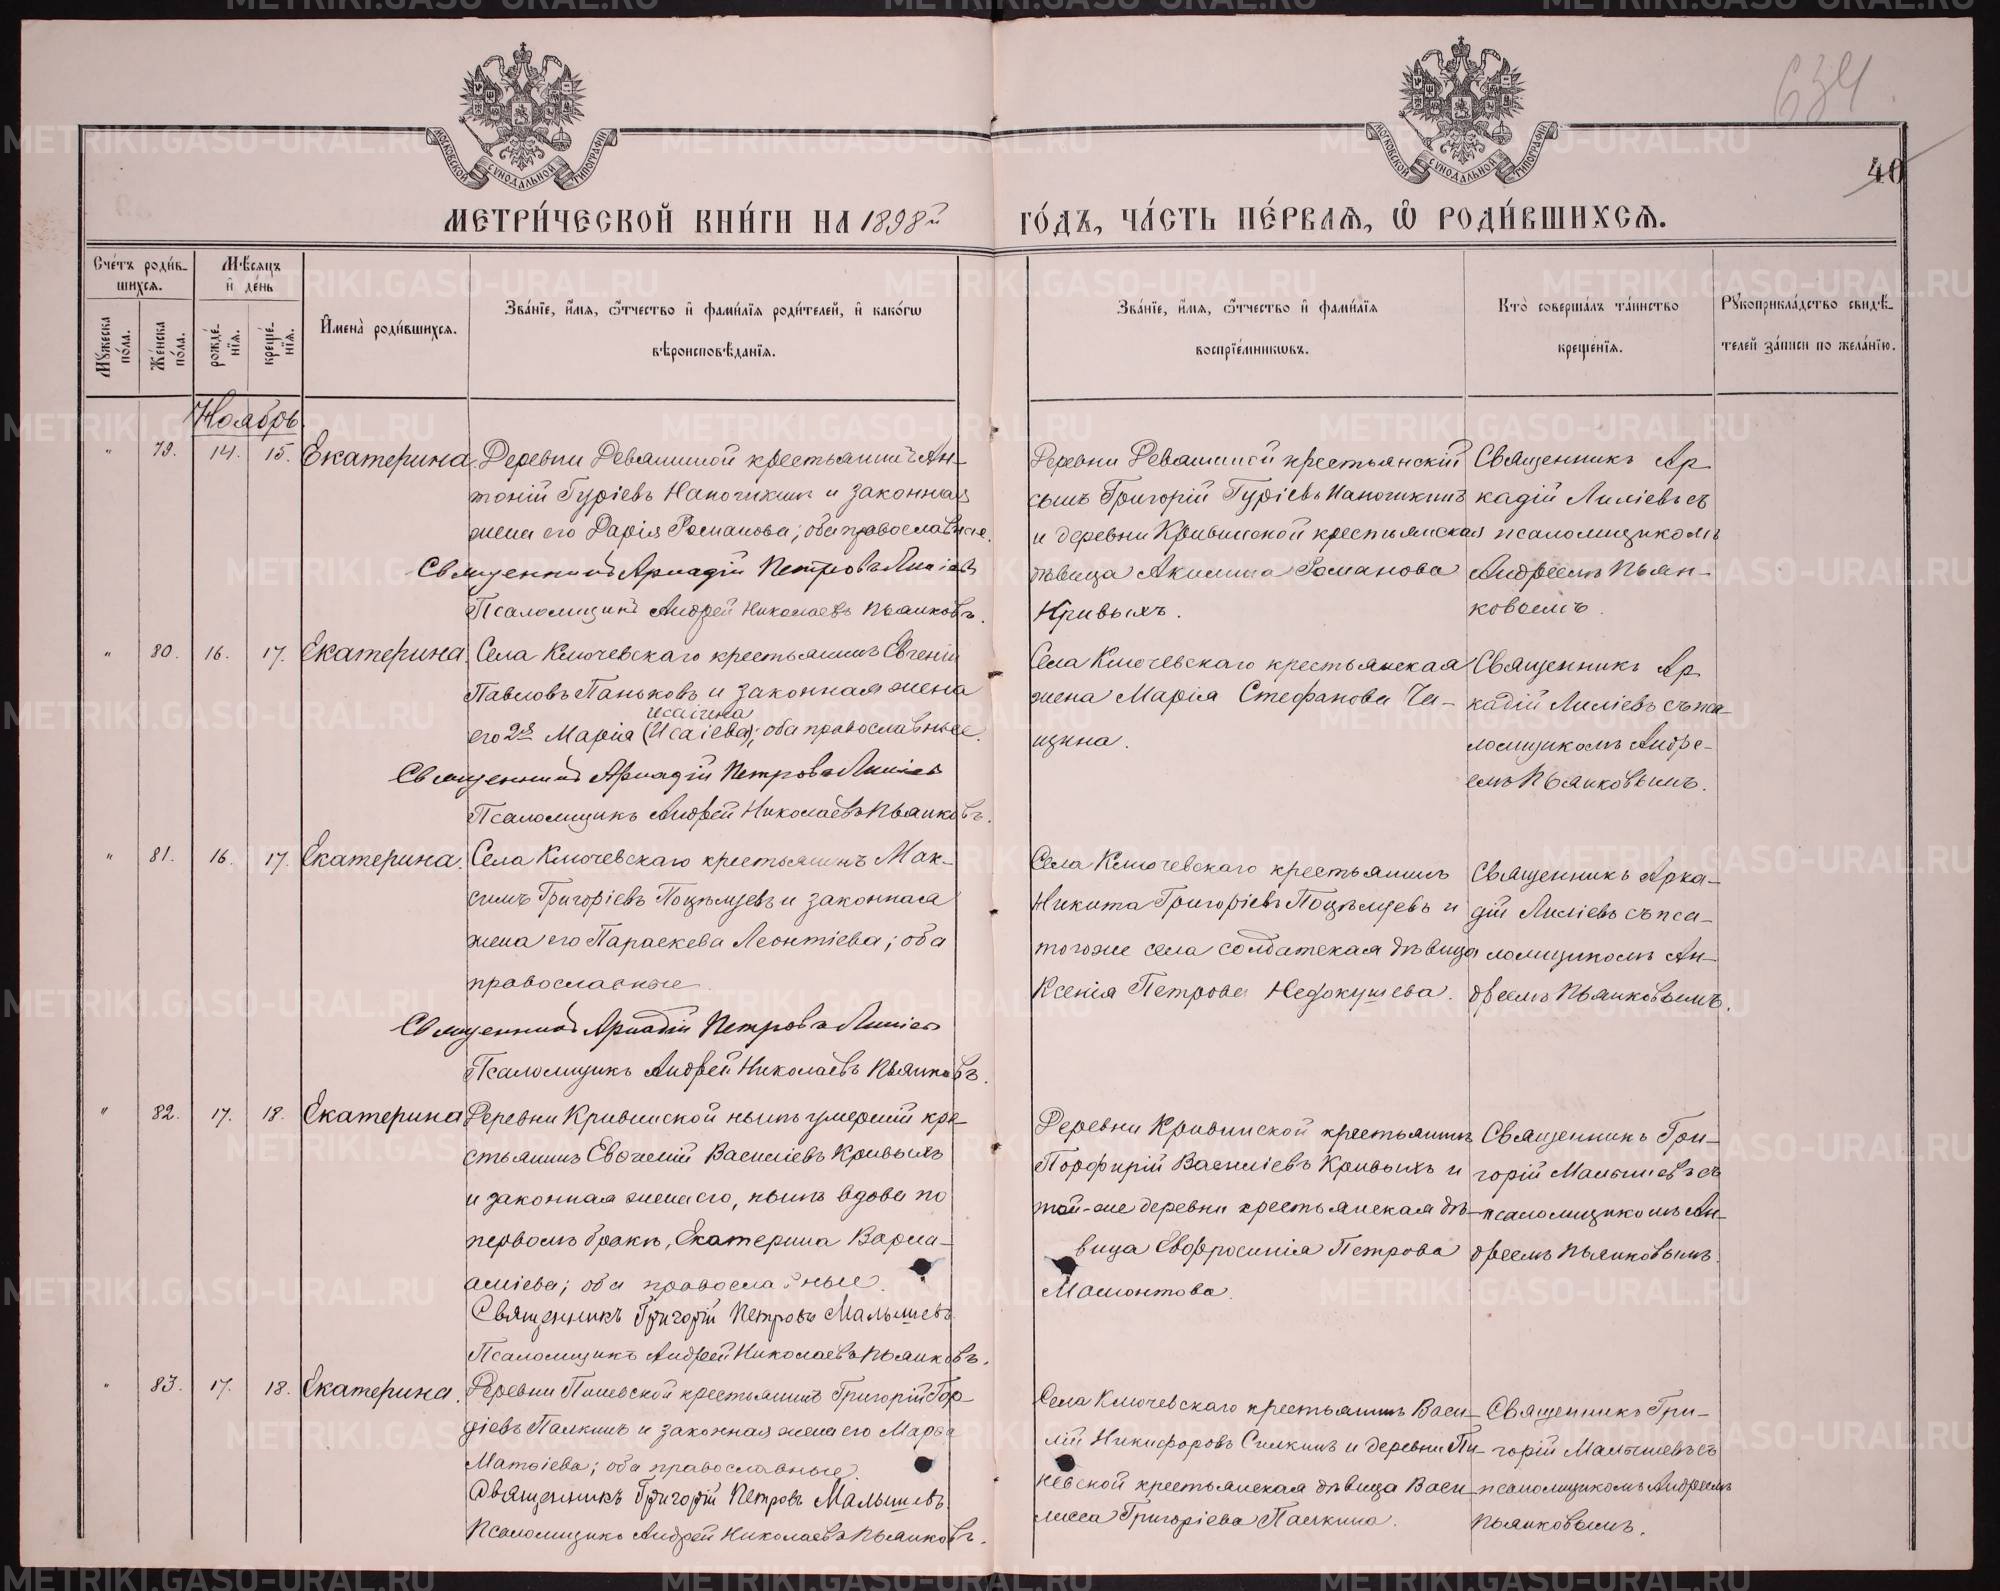 634.
40
МОСКОВСКОЙ СУНОДАЛЬНОЙ ТИПОГРАФІИ
МОСКОВСКОЙ СУНОДАЛЬНОЙ ТИПОГРАФІИ
МЕТРИ́ЧЕСКОЙ КНИ́ГИ НА 1898й ГО́ДЪ, ЧА́СТЬ ПЕ́РВАЯ, Ѡ РОДИ́ВШИХСЯ.
Сче́тъ роди́вшихся.
Мꙋ́жеска по́ла.
Же́нска по́ла.
Мѣ́сяцъ и де́нь
рожде́нїя.
креще́нїя.
Имена̀ роди́вшихся.
Зва́нїе, и́мя, ѻ́тчество и фами́лїя роди́телей, и како́гѡ
вѣроисповѣ́данїя.
Зва́нїе, и́мя, ѻ́тчество и фами́лїя
воспрїе́мникѡвъ.
Кто̀ соверша́лъ та́инство
креще́нїя.
Рꙋкоприкла́дство свидѣ́-
телей за́писи по жела́нїю.
Ноябрь
" 79. 14. 15. Екатерина
Деревни Ревашиной крестьянинъ Ан-
тоній Гуріевъ и законная
жена его Дарія Романова; оба православные.
Священникъ Аркадій Петровъ Лиліевъ
Псаломщикъ Андрей Николаевъ Пьянковъ.
Деревни крестьянскій
сынъ Григорій Гуріевъ
и деревни Кривинской крестьянская
дѣвица Акилина Романова
Кривыхъ.
Священникъ Ар
кадій Лиліевъ съ
псаломщикомъ
Андреемъ Пьян-
ковымъ.
" 80. 16. 17. Екатерина.
Села Ключевскаго крестьянинъ Евгеній
Павловъ Паньковъ и законная жена
Исаіина
его 2я Марія (Исаіева); оба православные.
Священникъ Аркадій Петровъ Лиліевъ
Псаломщикъ Андрей Николаевъ Пьянковъ.
Села Ключевскаго крестьянская
жена Марія Стефанова Ча-
щина.
Священникъ Ар
кадій Лиліевъ съ пса-
ломщикомъ Андре-
емъ Пьянковымъ.
" 81. 16. 17. Екатерина.
Села Ключевскаго крестьянинъ Мак-
симъ Григоріевъ и законная
жена его Параскева Леонтіева; оба
православные
Священникъ Аркадій Петровъ Лиліевъ
Псаломщикъ Андрей Николаевъ Пьянковъ.
Села Ключевскаго крестьянинъ
Никита Григоріевъ и
того же села солдатская дѣвица
Ксенія Петрова Недокушева.
Священникъ Арка-
дій Лиліевъ съ пса-
ломщикомъ Ан-
дреемъ Пьянковымъ.
" 82. 17. 18. Екатерина
Деревни Кривинской нынѣ умершій кре-
стьянинъ Евфимій Василіевъ Кривыхъ
и законная жена его, нынѣ вдова по
первомъ бракѣ, Екатерина Варла-
аміева; оба православные.
Священникъ Григорій Петровъ Малышевъ
Псаломщикъ Андрей Николаевъ Пьянковъ.
Деревни Кривинской крестьянинъ
Порфирій Василіевъ Кривыхъ и
той-же деревни крестьянская дѣ-
вица Евфросинія Петрова
Мамонтова.
Священникъ Гри-
горій Малышевъ съ
псаломщикомъ Ан-
дреемъ Пьянковымъ.
" 83. 17. 18. Екатерина.
Деревни крестьянинъ Григорій Гор-
діевъ Палкинъ и законная жена его Марѳа
Матѳіева; оба православные.
Священникъ Григорій Петровъ Малышевъ.
Псаломщикъ Андрей Николаевъ Пьянковъ.
Села Ключевскаго крестьянинъ Васи-
лій Никифоровъ и деревни
крестьянская дѣвица Васи-
лисса Григоріева Палкина.
Священникъ Гри-
горій Малышевъ съ
псаломщикомъ Андреемъ
Пьянковымъ.
METRIKI.GASO-URAL.RU